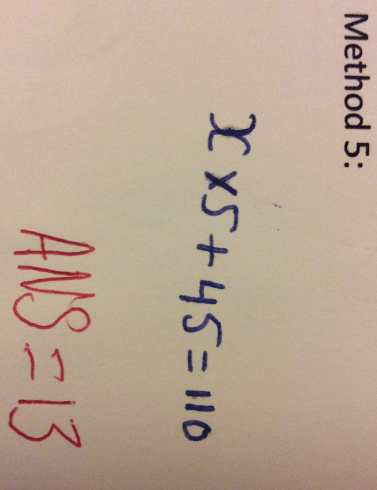 Method 5:
x x5+45=110
ANS=13